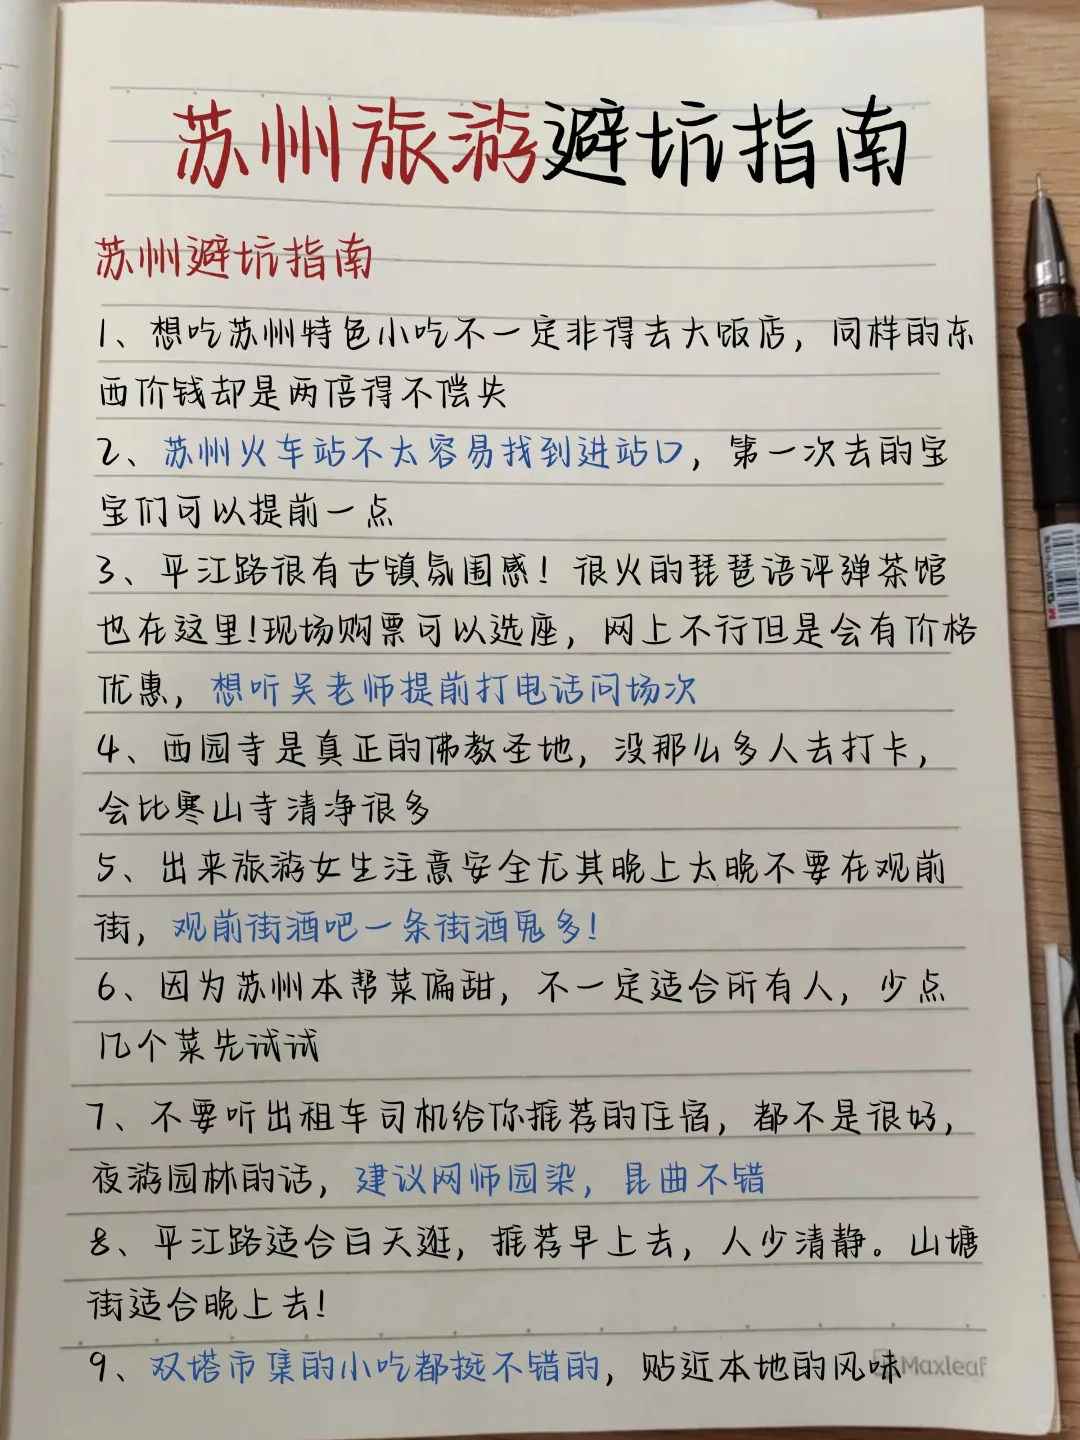 苏州旅游避坑指南
苏州避坑指南
1、想吃苏州特色小吃不一定非得去大饭店，同样的东
西价钱却是两倍得不偿失
2、苏州火车站不太容易找到进站口，第一次去的宝
宝们可以提前一点
3、平江路很有古镇氛围感！很火的琵琶语评弹茶馆
也在这里！现场购票可以选座，网上不行但是会有价格
优惠，想听吴老师提前打电话问场次
4、西园寺是真正的佛教圣地，没那么多人去打卡，
会比寒山寺清净很多
5、出来旅游女生注意安全尤其晚上太晚不要在观前
街，观前街酒吧一条街酒鬼多！
6、因为苏州本帮菜偏甜，不一定适合所有人，少点
几个菜先试试
7、不要听出租车司机给你推荐的住宿，都不是很好，
夜游园林的话，建议网师园染，昆曲不错
8、平江路适合白天逛，推荐早上去，人少清静。山塘
街适合晚上去！
9、双塔市集的小吃都挺不错的，贴近本地的风味
Maxleaf